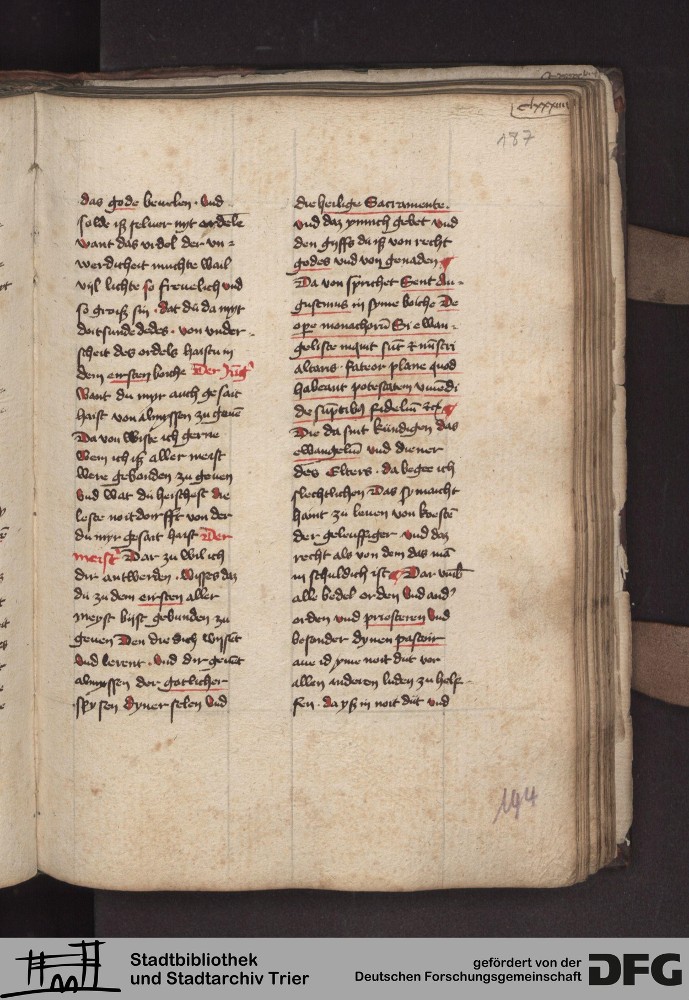 clxxxiiii
187
das gode bevelen · Und
solde iß selver nyt ordele
want das urdel der un=
werdicheit muchte wail
vijl lichte so frevelich und
so groiß sin · dat du da myt
doitsunde dedes · von under-
scheit des ordels haistu in
dem eirsten boiche Der Jung
Want du myr auch gesait
haist von almyssen zu geuē
Da von wiste ich gerne
Wem ich iß aller meist
were gebonden zu geuen
Und wat du heischest die
leste noitdorfft von der
du myr gesait haist Der
meist Dar zu wil ich
dir antwerden · wisses daz
du zu dem eirsten aller
meyst bijst gebunden zu
geuen Den die dich wijsent
Und lerent · Und dir geuēt
almyssen der gotlicher
spysen dyner selen Und
die heilige Sacramente ·
Und daz ynnich gebet Und
den gyffs du iß von recht
godes und von genaden
Da von sprichet Sent Au-
gustinus in syme boiche De
ope monachorū Si ewan-
geliste inquit sūt et mīstri
altaris · fateor plane quod
habeant potestatem vivēdi
de sūptibus fidelium etc
Die da sint kundigen das
ewangeliū und diener
des Elters · da begee ich
slechtlichen Das sy maicht
haint zu leuen von koestē
der geleuffiger · und daz
recht als von dem das mā
in schuldich ist Dar umb
alle bedel orden Und and'
orden und priesteren Und
besonder dynen pastoir
ave id yme noit dut vor
allen anderen luden zu helf-
fen · da yß in noit dut und
194
Stadtbibliothek
und Stadtarchiv Trier
gefördert von der
Deutschen Forschungsgemeinschaft
DFG